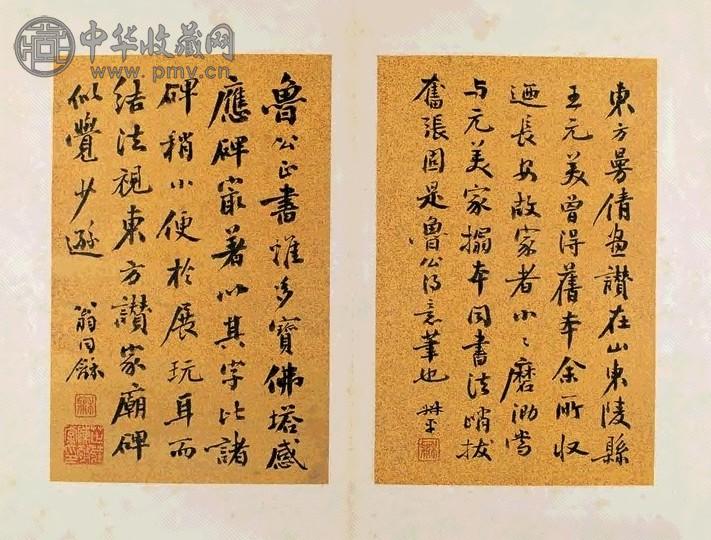 中华收藏网
www.pmv.cn
東方曼倩畫讃在山東陵縣
王元美曾得舊本余所收
迺長安故家者小〻磨泐當
与元美家搨本同書法峭拔
奮張固是魯公得意筆也 叔平
魯公正書惟多寶佛塔感
應碑最著以其字比諸
碑稍小便於展玩耳而
結法視東方讃家廟碑
似覺少遜
翁同龢